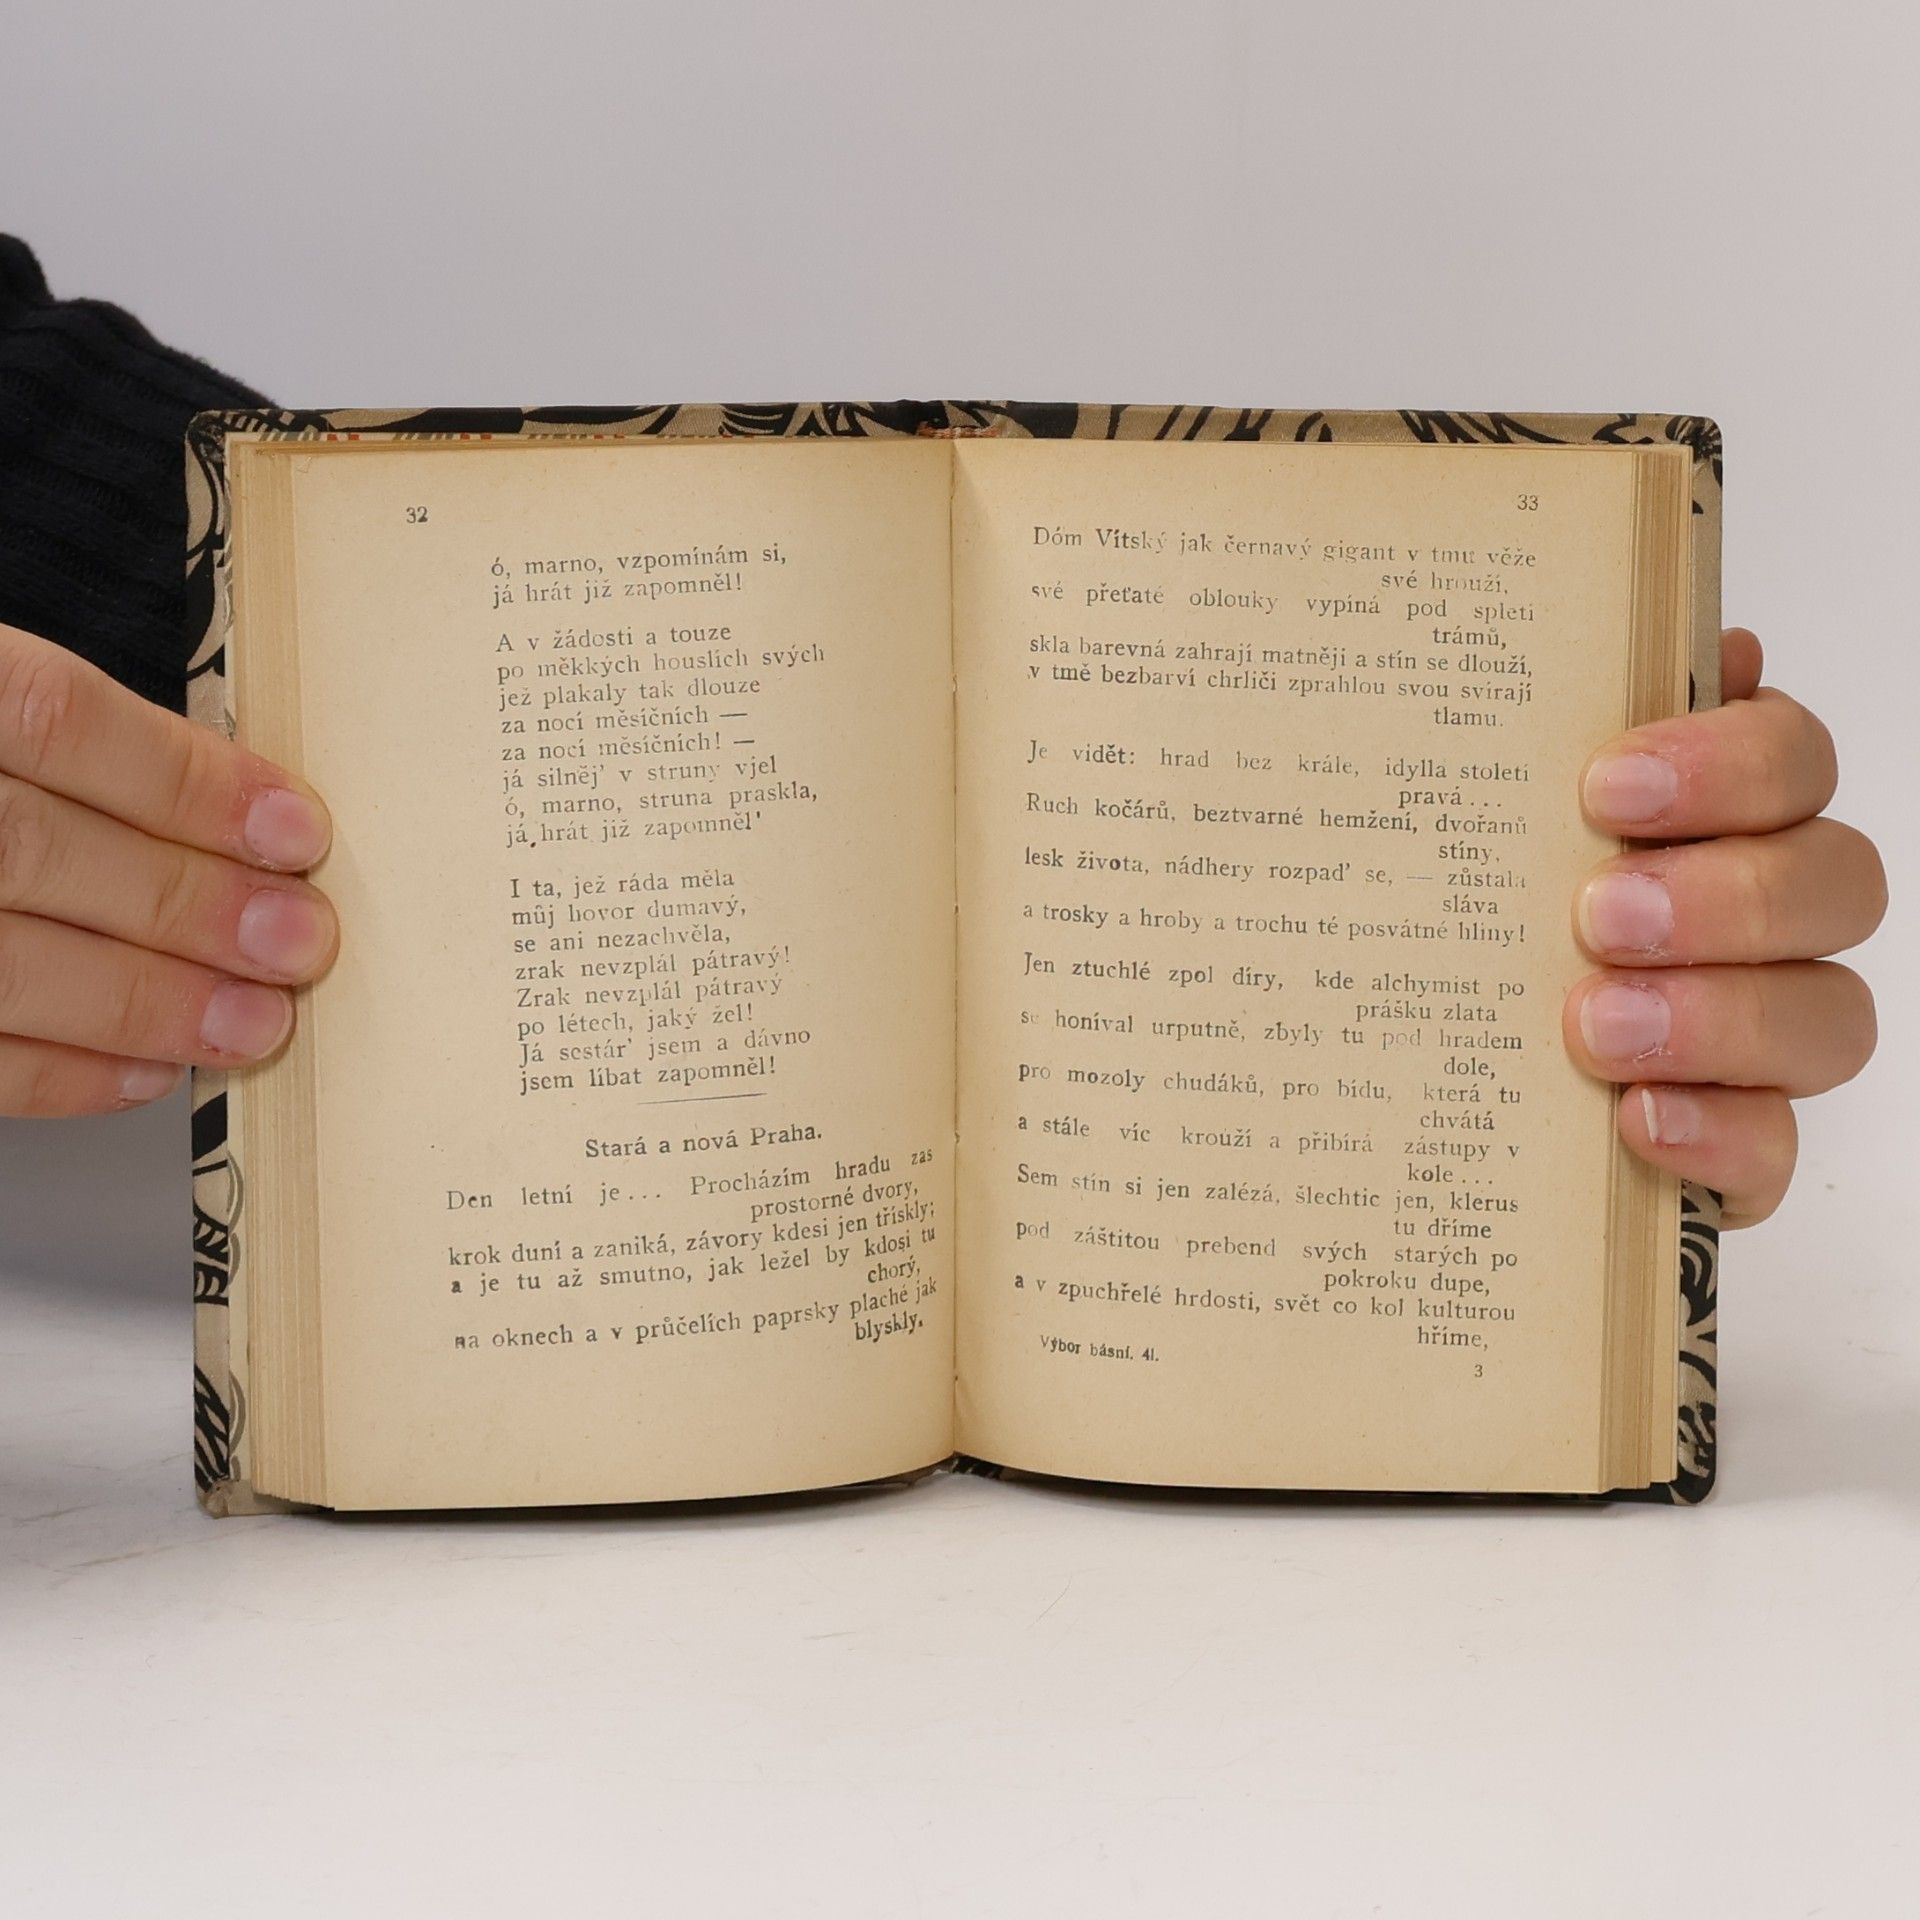 32
ó, marno, vzpomínám si,
já hrát již zapomněl!
A v žádosti a touze
po měkkých houslích svých
jež plakaly tak dlouze
za nocí měsíčních —
za nocí měsíčních! —
já silněj’ v struny vjel
ó, marno, struna praskla,
já hrát již zapomněl'
I ta, jež ráda měla
můj hovor dumavý,
se ani nezachvěla,
zrak nevzplál pátravý!
Zrak nevzplál pátravý
po létech, jaký žel!
Já sestár’ jsem a dávno
jsem líbat zapomněl!
Stará a nová Praha.
Den letní je... Procházím hradu zas
prostorné dvory,
krok duní a zaniká, závory kdesi jen třískly;
a je tu až smutno, jak ležel by kdosi tu
chorý,
na oknech a v průčelích paprsky plaché jak
blyskly.
33
Dóm Vítský jak černavý gigant v tmu věže
své hrouží,
své přeťaté oblouky vypíná pod spletí
trámů,
skla barevná zahrají matněji a stín se dlouží,
v tmě bezbarví chrliči zprahlou svou svírají
tlamu.
Je vidět: hrad bez krále, idylla století
pravá...
Ruch kočárů, beztvarné hemžení, dvořanů
stíny,
lesk života, nádhery rozpad’ se, — zůstala
sláva
a trosky a hroby a trochu té posvátné hlíny!
Jen ztuchlé zpol díry, kde alchymist po
prášku zlata
se honíval urputně, zbyly tu pod hradem
dole,
pro mozoly chudáků, pro bídu, která tu
chvátá
a stále víc krouží a přibírá zástupy v
kole...
Sem stín si jen zalézá, šlechtic jen, klerus
tu dříme
pod záštitou prebend svých starých po
pokroku dupe,
a v zpuchřelé hrdosti, svět co kol kulturou
hříme,
Výbor básní. 41.
3